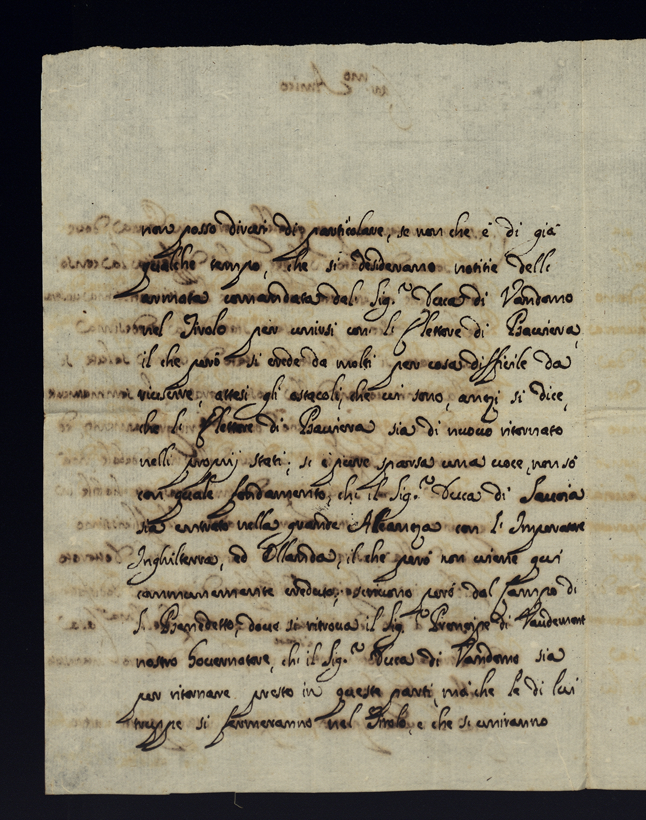 non posso dirvi di particolare, se non che è di già
qualche tempo, che si desiderano notitie dell:
armata comandata dal Sig.r Duca di Vandomo
nel Tirolo per unirsi con l: Elettore di Baviera,
il che però si crede da molti per cosa difficile da
riuscire, attesi gli ostacoli, che vi sono, anzi si dice,
che l: Elettore di Baviera sia di nuovo ritornato
nelli proprij stati; si è pure sparsa una voce, non sò
con quale fondamento, che il Sig.r Duca di Savoia
sia entrato nella grande Aleanza con l: Imperatore
Inghilterra, ed Ollanda, il che però non viene qui
communamente creduto; scrivono però dal Campo di
S. Benedetto, dove si ritrova il Sig.r Prencipe di Vaudemont
nostro Governatore, che il Sig.r Duca di Vandomo sia
per ritornare presto in queste parti, mà che le di lui
truppe si fermeranno nel Tirolo, e che si uniranno